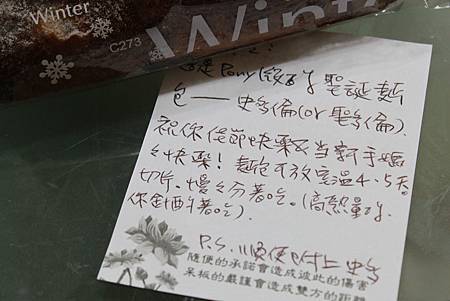 Winter
C273
Wint
這是Pony做的聖誕麵
包——史多倫(or聖多倫).
祝你佳節快樂及當新手媽
媽快樂! 麵包可放室溫4-5天。
切片,慢々分著吃。(高熱量!!
你酌著吃).
P.S. 順便附上史多
隨便的承諾會造成彼此的傷害
呆板的嚴謹會造成雙方的距離